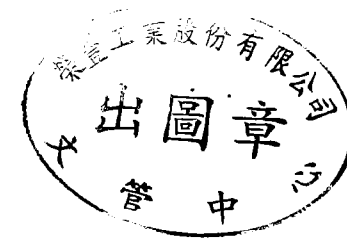 榮宣工業股份有限公司
出圖章
文管中心